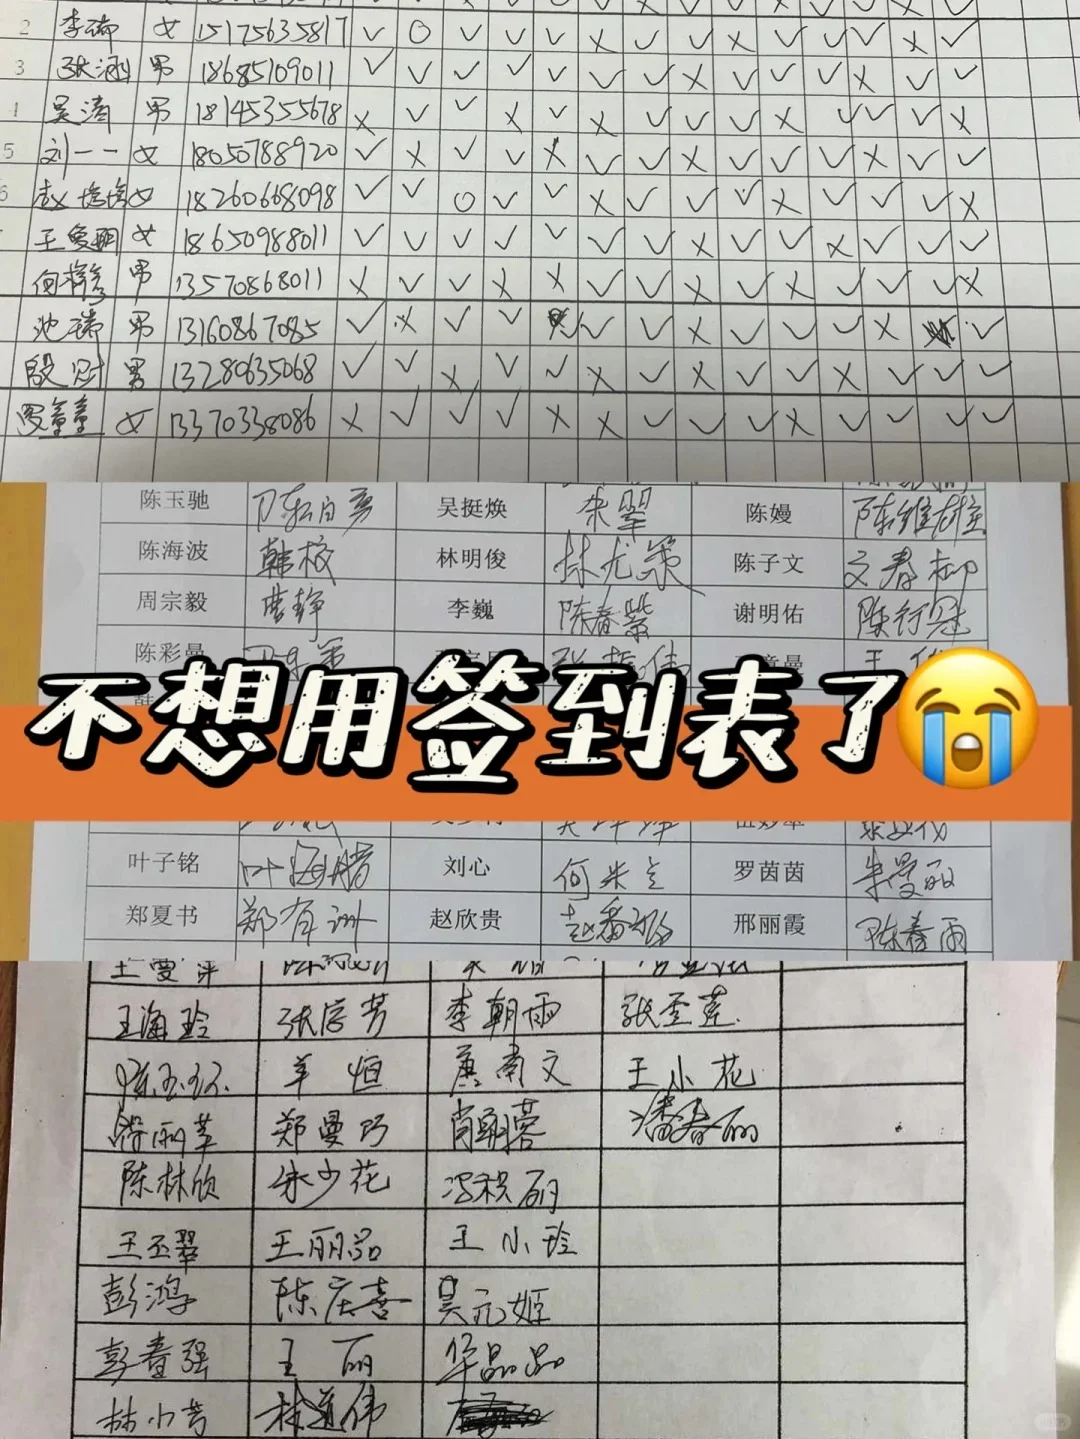 2 李瑞 女 15175635817 ✓ O ✓ ✓ ✓ × ✓ ✓ × ✓ ✓ ✓ × ✓
3 张涵 男 18685109011 ✓ ✓ ✓ ✓ ✓ ✓ ✓ × ✓ ✓ ✓ × ✓ ✓
4 吴清 男 18145355678 × ✓ ✓ × ✓ × ✓ ✓ ✓ × ✓ ✓ ✓ ×
5 刘一一 女 18050788920 ✓ × ✓ ✓ × ✓ ✓ × ✓ ✓ ✓ × ✓ ✓
6 赵 女 18260668098 ✓ ✓ O ✓ ✓ × ✓ ✓ ✓ × ✓ ✓ ✓ ×
王曼丽 女 18650988011 ✓ ✓ ✓ ✓ ✓ ✓ ✓ × ✓ ✓ × ✓ ✓ ✓
何 男 13570868011 × ✓ ✓ × × ✓ ✓ × ✓ × ✓ ✓ ✓ ×
池瑞 男 13160867085 ✓ × ✓ ✓ ✓ ✓ × ✓ ✓ ✓ × ✓
殷财 男 13280635068 ✓ ✓ × ✓ ✓ × ✓ × ✓ ✓ × ✓ ✓ ✓
罗童童 女 13370338086 × ✓ ✓ ✓ × × ✓ ✓ ✓ × ✓ ✓ ✓ ✓
陈玉驰 吴挺焕 朱翠 陈嫚 陈维桂
陈海波 韩校 林明俊 林尤策 陈子文 文春柳
周宗毅 曹静 李巍 陈春紫 谢明佑 陈行冠
陈彩曼 张振伟
不想用签到表了😭
叶子铭 叶海腊 刘心 何朱立 罗茵茵 朱曼丽
郑夏书 郑有洲 赵欣贵 赵香 邢丽霞 陈春雨
王曼萍
王海玲 张学芳 李朝雨 张圣莲
陈玉环 羊恒 唐南文 王小花
郑曼巧 肖朝蓉 潘春丽
陈林欣 朱少花 冯积丽
王丕翠 王丽品 王小玲
彭鸿 陈庆喜 吴元姬
彭春强 王丽 华品品
林小芳 林道伟